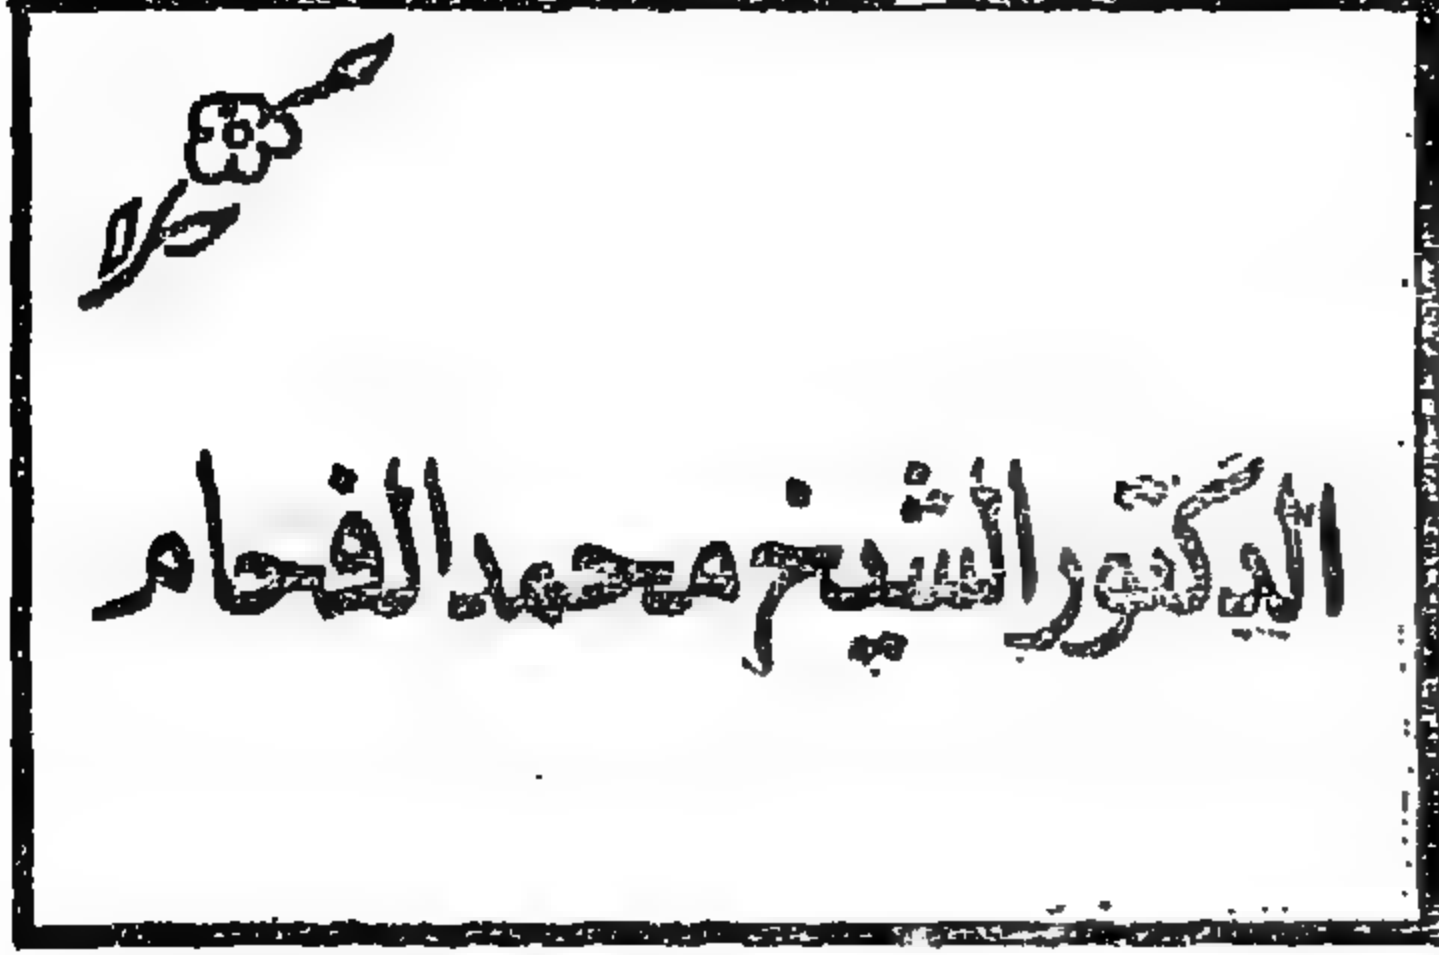 الدكتور الشيخ محمد الفحام